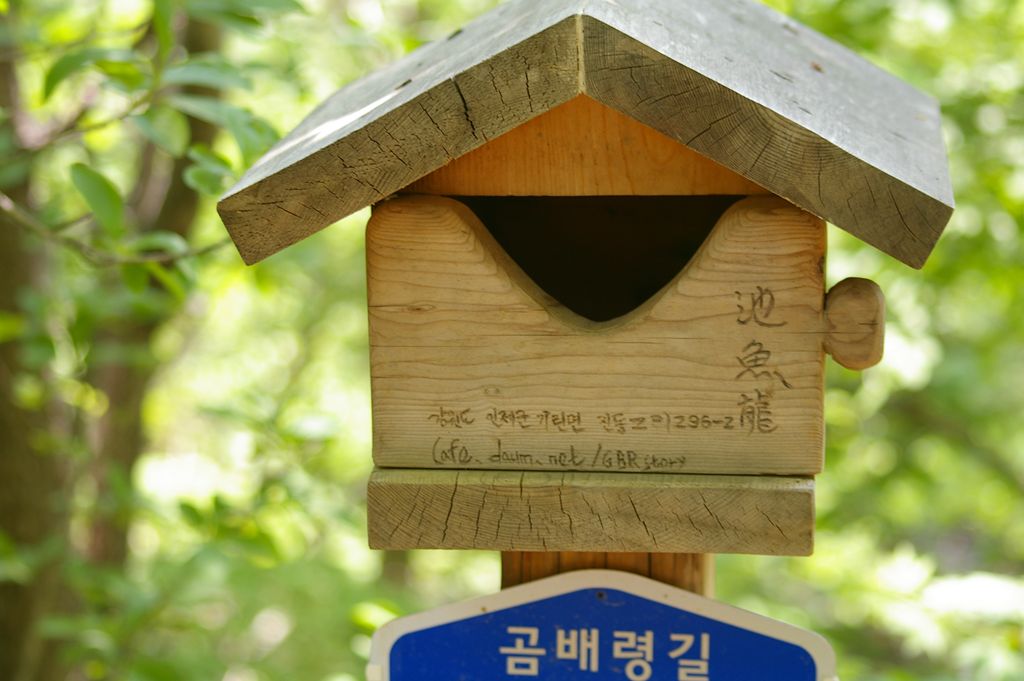 池魚龍
강원도 인제군 기린면 진동2리 296-2
Cafe.daum.net/GBRstory
곰배령길